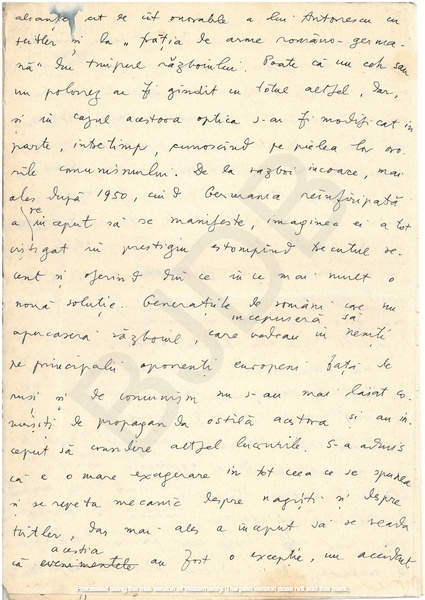 alianța cît de cît onorabilă a lui Antonescu cu
Hitler și la „frăția de arme româno-germa-
nă" din timpul războiului. Poate că un ceh sau
un polonez ar fi gîndit cu totul altfel, dar,
și în cazul acestora optica s-ar fi modificat în
parte, între timp, cunoscînd pe pielea lor oro-
rile comunismului. De la război încoace, mai
ales după 1950, cînd Germania reînfiripată
re
a început să se manifeste, imaginea ei a tot
cîștigat în prestigiu estompînd trecutul re-
cent și oferind din ce în ce mai mult o
nouă soluție. Generațiile de români care nu
începuseră să
apucaseră războiul, care vedeau în nemți
pe principalii oponenți europeni față de
ruși și de comunism nu s-au mai lăsat co-
pleșiți de propaganda ostilă acestora și au în-
ceput să considere altfel lucrurile. S-a admis
că e o mare exagerare în tot ceea ce se spunea
și se repeta mecanic despre naziști și despre
Hitler, dar mai ales a început să se creadă
acestia
că evenimentele au fost o excepție, un accident
BJDP